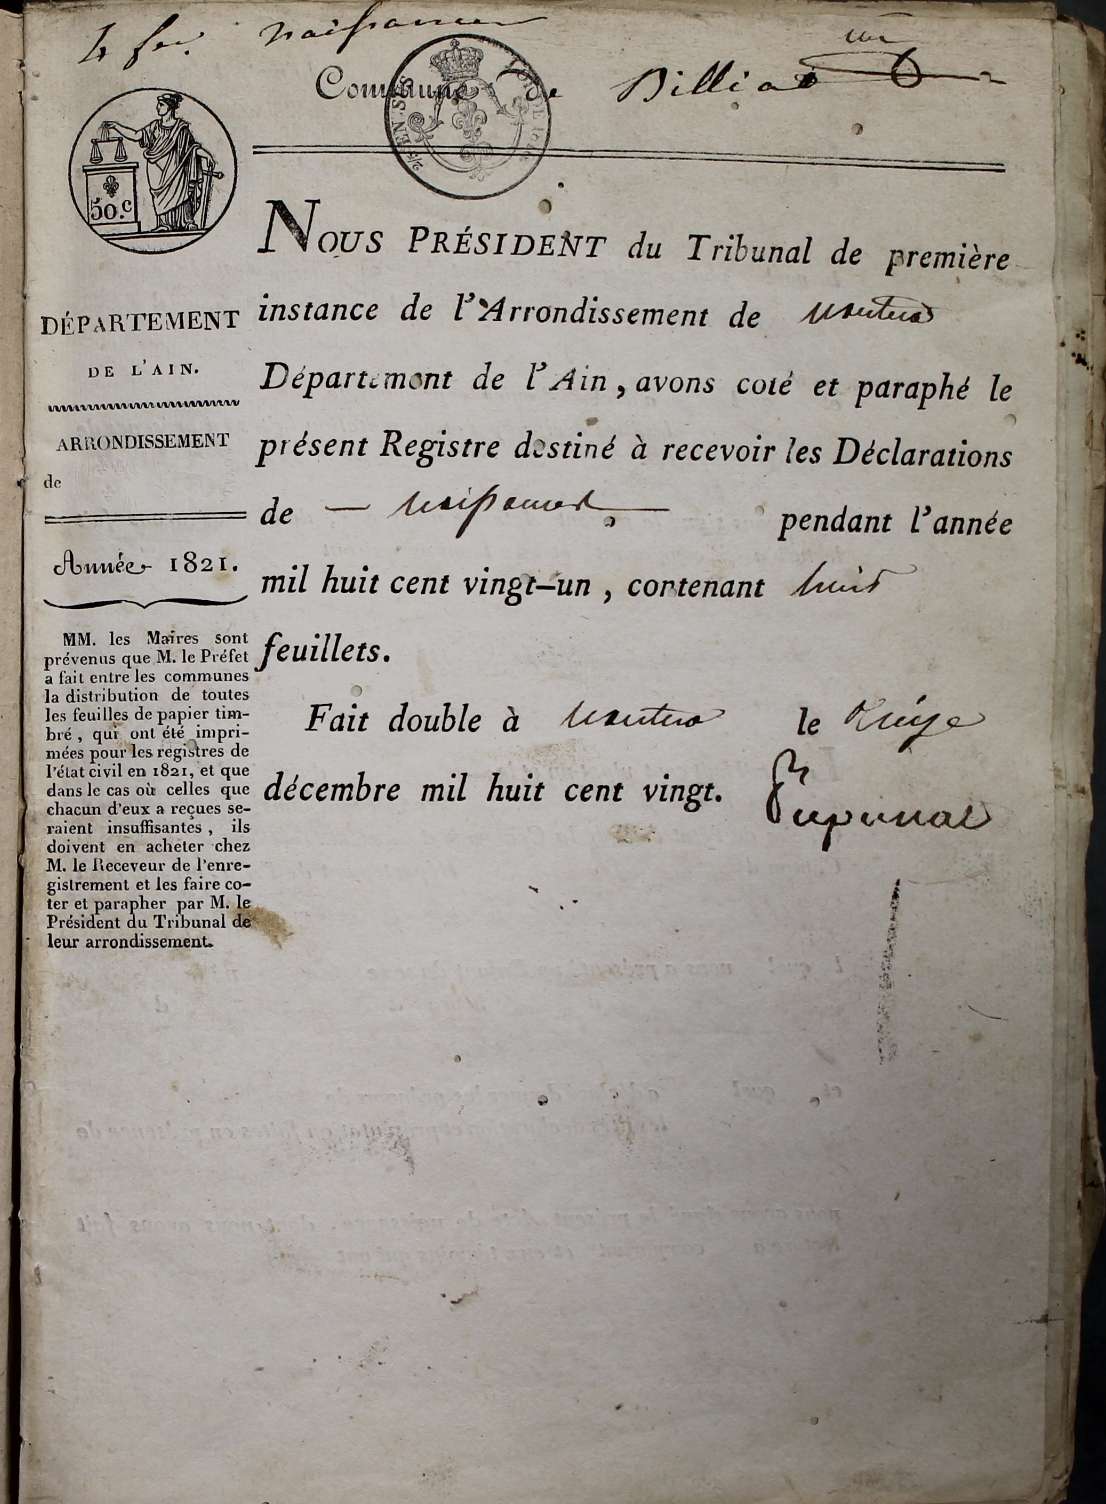 naissances
Commune de Billiat
50.c
DÉPARTEMENT
DE L'AIN.
ARRONDISSEMENT
de
Année 1821.
MM. les Maires sont
prévenus que M. le Préfet
a fait entre les communes
la distribution de toutes
les feuilles de papier tim-
bré, qui ont été impri-
mées pour les registres de
l'état civil en 1821, et que
dans le cas où celles que
chacun d'eux a reçues se-
raient insuffisantes, ils
doivent en acheter chez
M. le Receveur de l'enre-
gistrement et les faire co-
ter et parapher par M. le
Président du Tribunal de
leur arrondissement.
NOUS PRÉSIDENT du Tribunal de première
instance de l'Arrondissement de Nantua
Département de l'Ain, avons coté et paraphé le
présent Registre destiné à recevoir les Déclarations
de — naissances — pendant l'année
mil huit cent vingt-un, contenant huit
feuillets.
Fait double à Nantua le
décembre mil huit cent vingt.